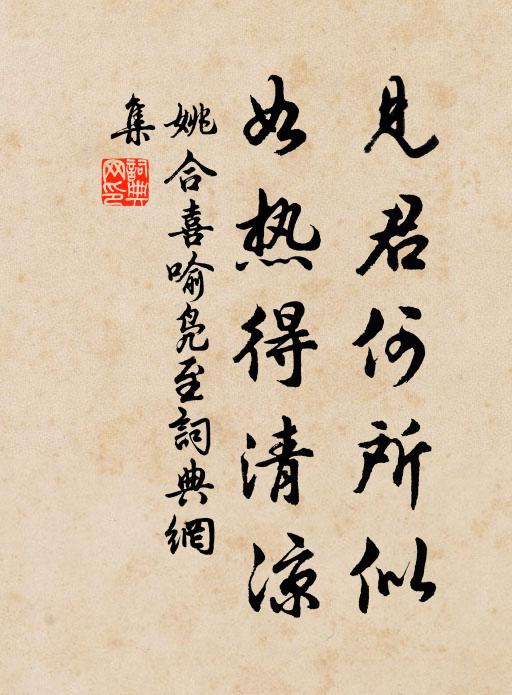 見君何所似
如热得清凉
姚合喜喻凫至詞典網
集
詞典
网印